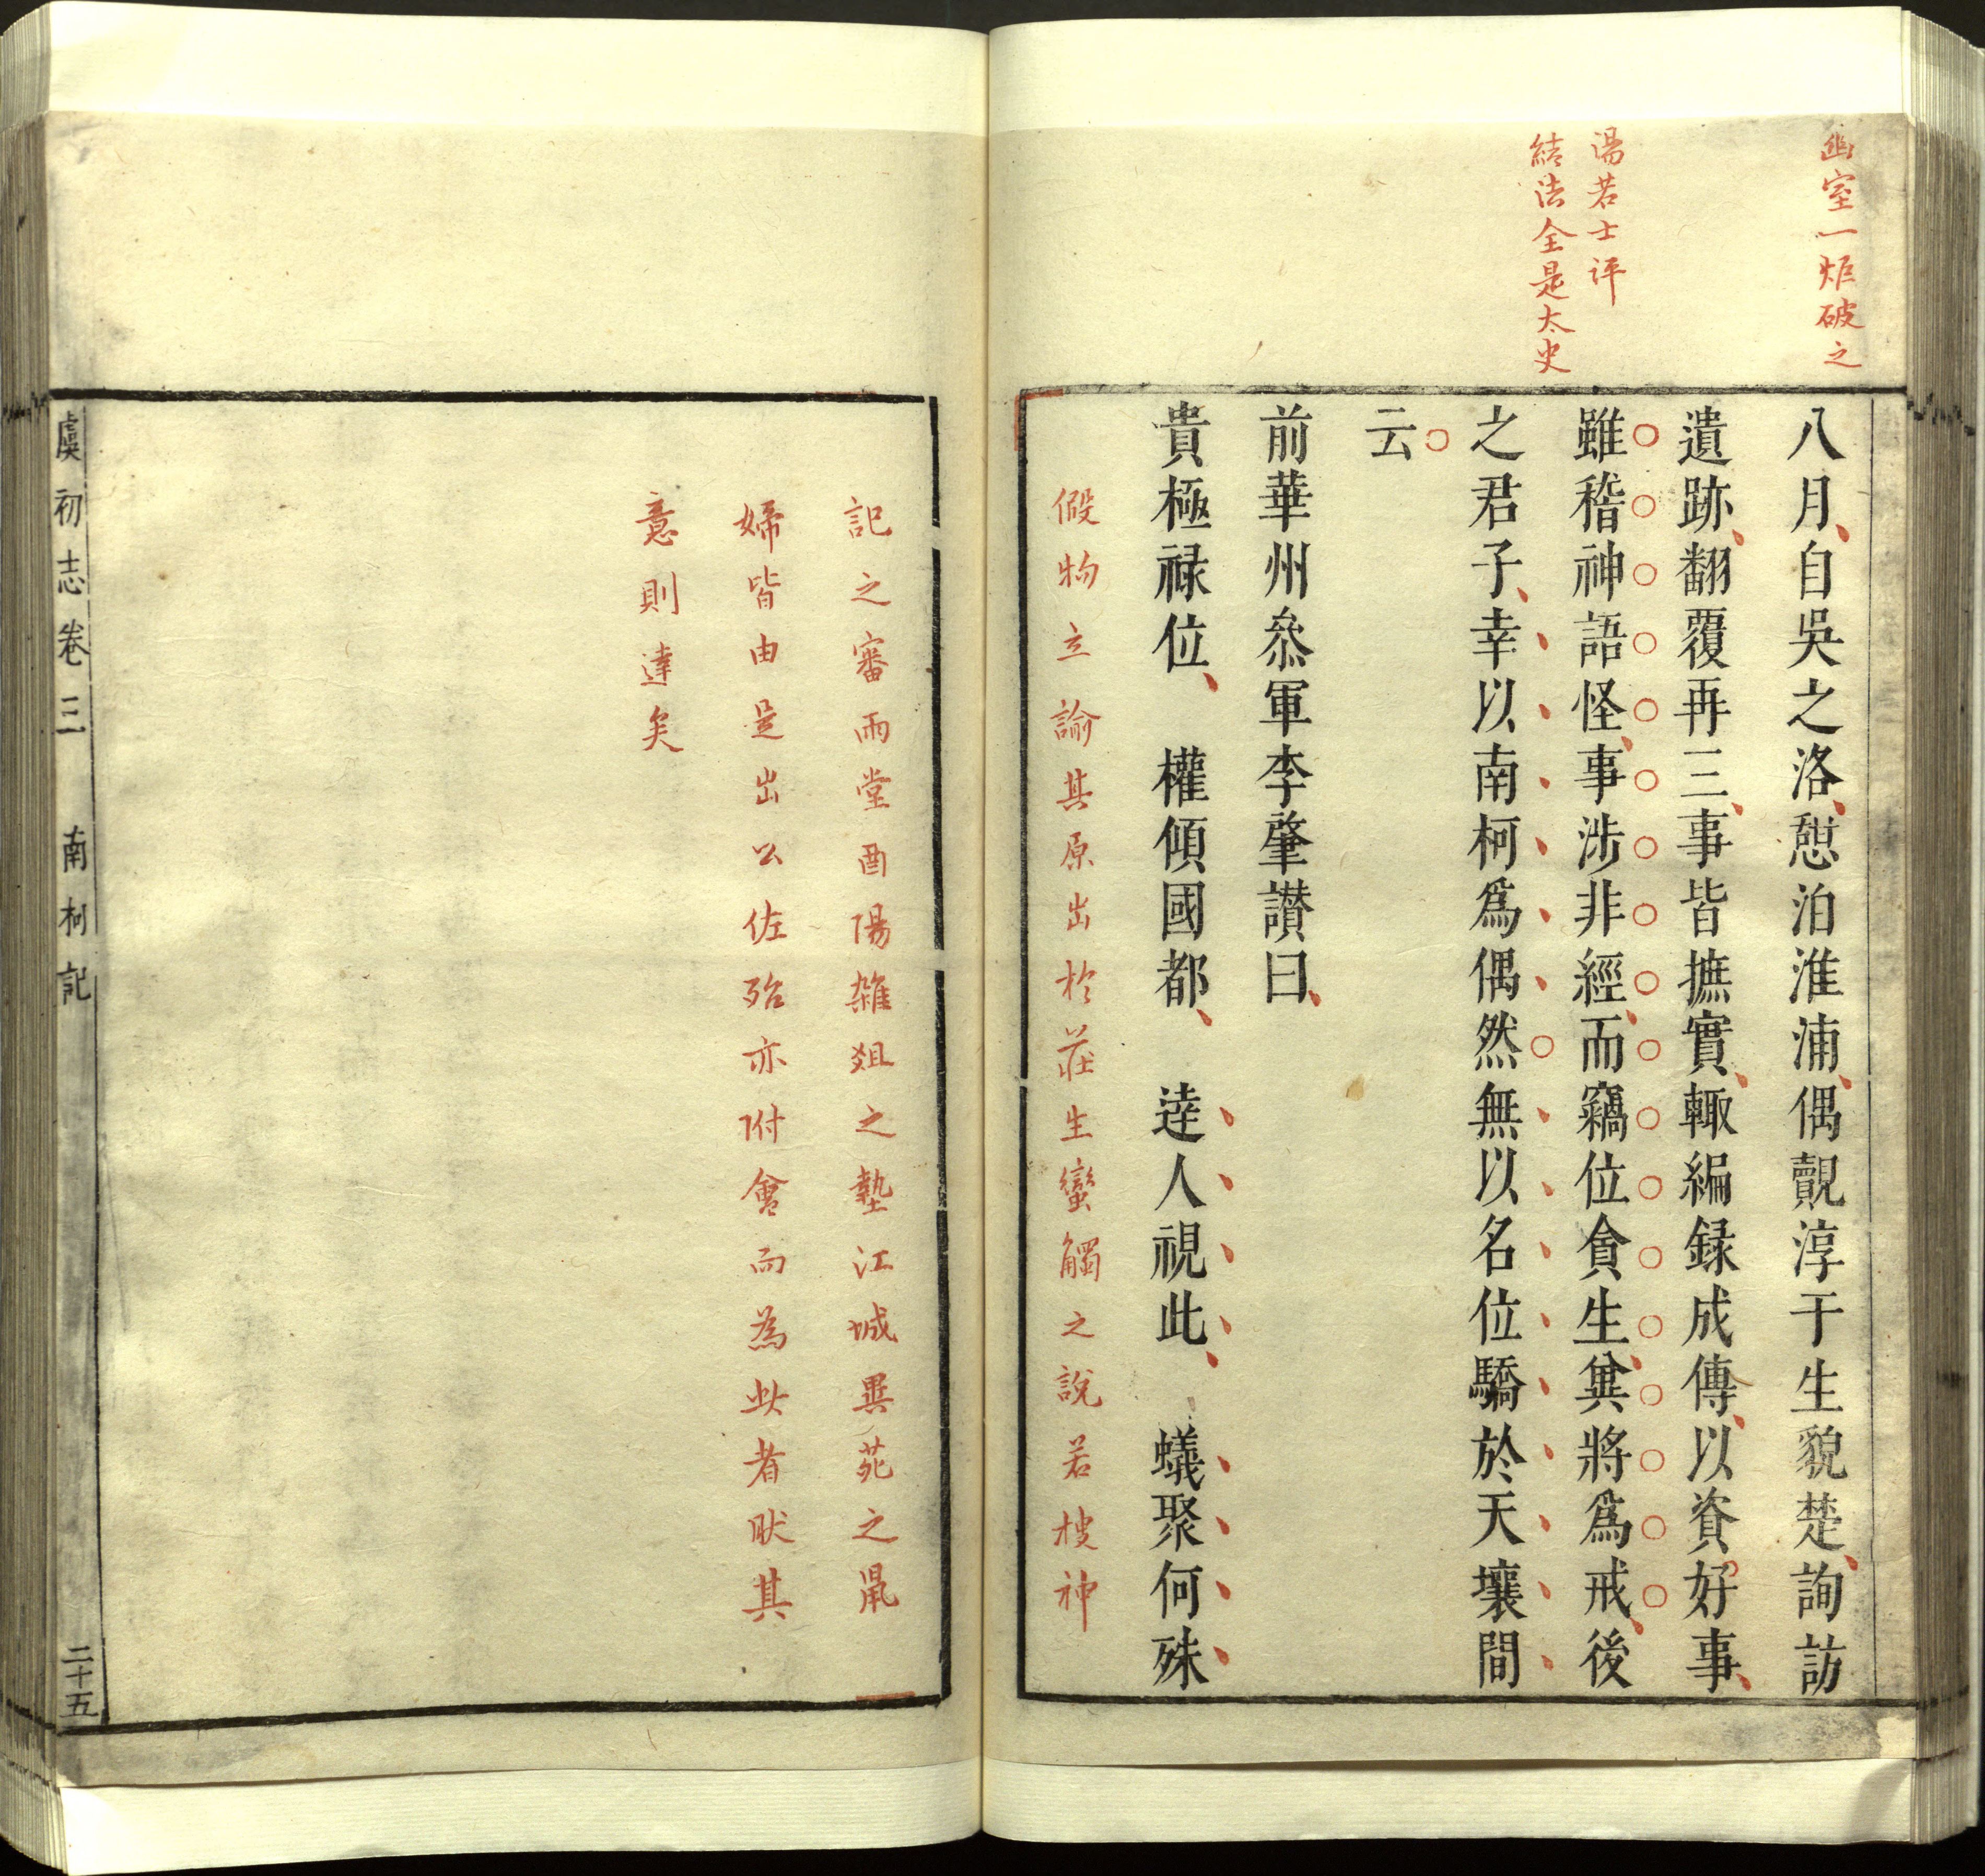 幽室一炬破之
湯若士评
結法全是太史
八月、自吳之洛、憇泊淮浦、偶覿淳于生貌楚、詢訪
遺跡、翻覆再三、事皆摭實、輙編録成傳、以資好事、
雖稽神語怪、事涉非經、而竊位貪生、兾將爲戒、後
之君子、幸以南柯爲偶然無以名位驕於天壤間
云
前華州叅軍李肇讃曰、
貴極禄位、 權傾國都、 逹人視此、 蟻聚何殊
假物立諭其原出扵莊生蠻觸之說若搜神
記之審雨堂酉陽雜俎之墊江城異苑之鼠
婦皆由是出公佐殆亦附會而為此者耿其
意則達矣
虞初志卷三 南柯記 二十五